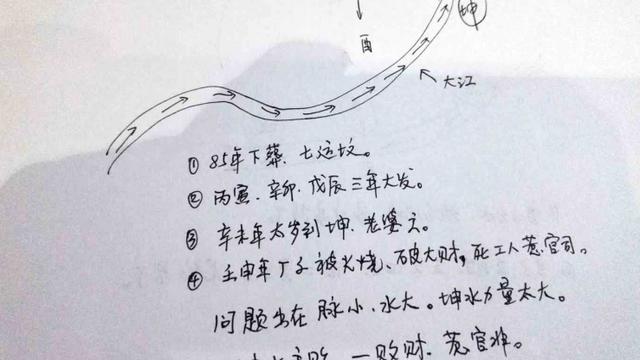 坤
酉
大江
① 85年下葬、七运坟。
② 丙寅、辛卯、戊辰三年大发。
③ 辛未年太岁到坤、老婆亡。
④ 壬申年厂子被火烧、破大财,死工人惹官司。
问题出在脉小、水大。坤水力量太大。
败财、惹官非。